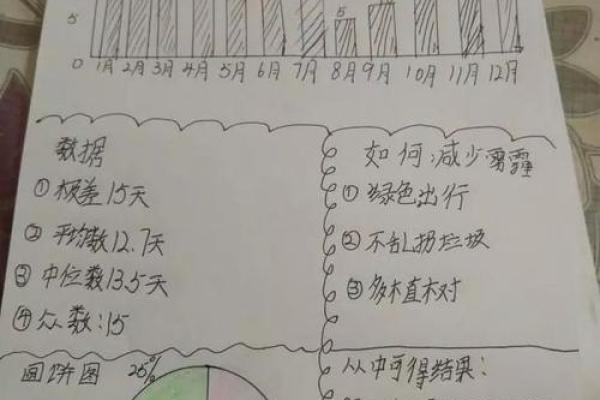 5
5
0 1月 2月 3月 4月 5月 6月 7月 8月 9月 10月 11月 12月
数据
①极差15天
②平均数12.7天
③中位数13.5天
④众数:15
如何减少雾霾
①绿色出行
②不乱扔垃圾
③多植树
画饼图 25%
从中可得结果: